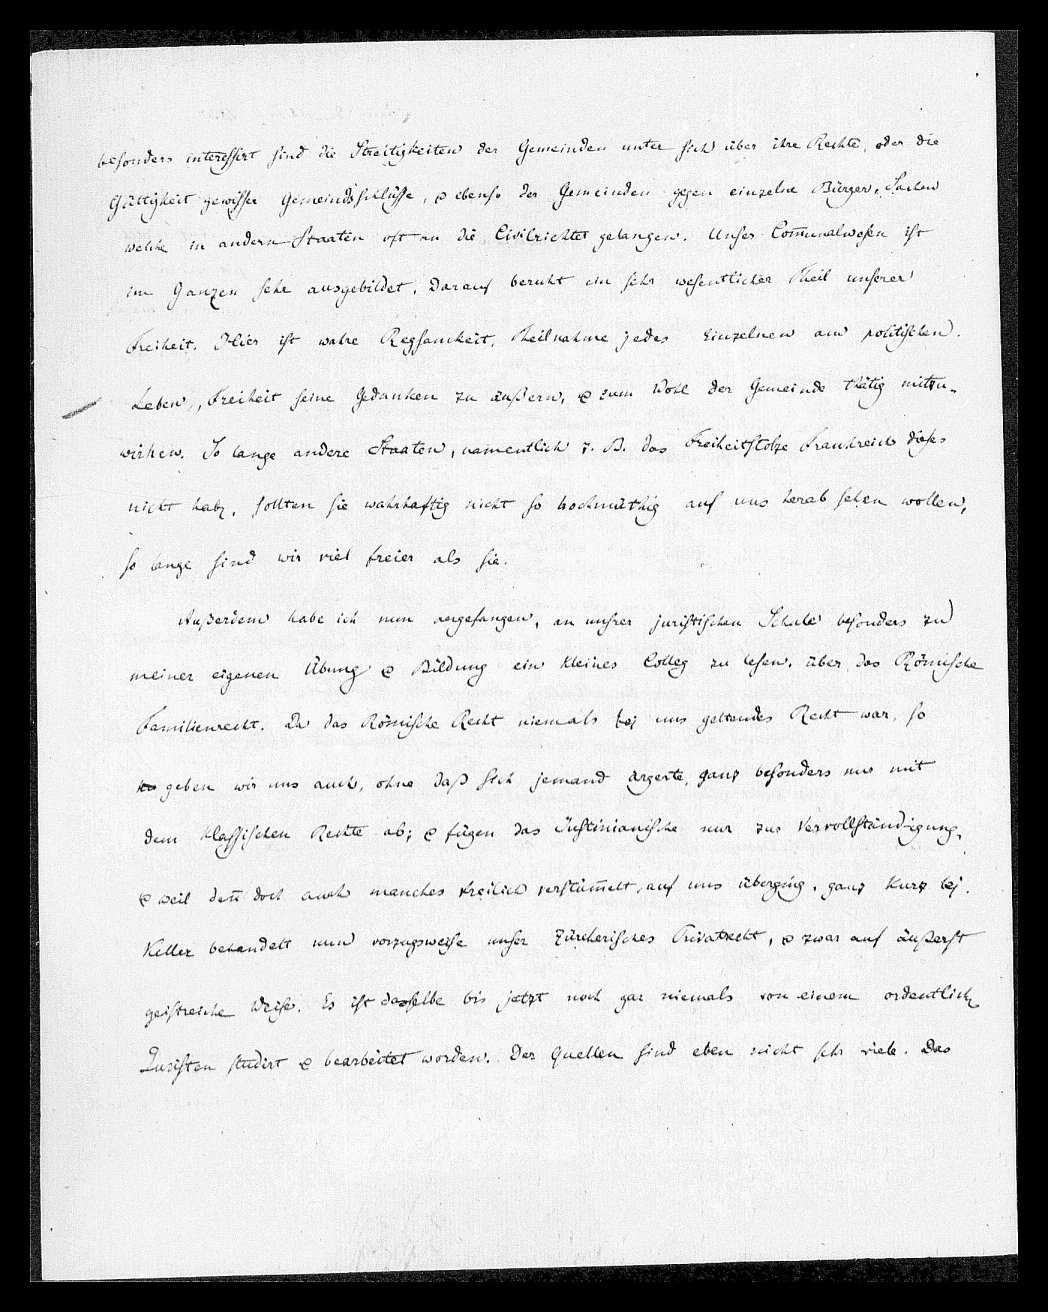 besonders interessirt sind die Streitigkeiten der Gemeinden unter sich über ihre Rechte, oder die
Gültigkeit gewisser Gemeindsschlüsse, & ebenso der Gemeinden gegen einzelne Bürger, Sachen
welche in andern Staaten oft an die Civilrichter gelangen. Unser Com̅unalwesen ist
im Ganzen sehr ausgebildet. Darauf beruht ein sehr wesentlicher Theil unserer
Freiheit. Hier ist wahre Regsamkeit, Theilnahme jedes Einzelnen am politischen
Leben, Freiheit seine Gedanken zu äußern, & zum Wohl der Gemeinde thätig mitzu-
wirken. So lange andere Staaten, namentlich z. B. das Freiheitstolze Frankreich dieses
nicht hab, sollten sie wahrhaftig nicht so hochmüthig auf uns herab sehen wollen,
so lange sind wir viel freier als sie.
Außerdem habe ich nun angefangen, an unsrer juristischen Schule besonders zu
meiner eigenen Übung & Bildung ein kleines Colleg zu lesen, über das Römische
Familienrecht. Da das Römische Recht niemals bej uns geltendes Recht war, so
geben wir uns auch, ohne daß sich jemand ärgerte, ganz besonders nur mit
dem klassischen Rechte ab; & fügen das Justinianische nur zur Vervollständigung,
& weil den̅ doch auch manches freilich verstüm̅elt, auf uns überging, ganz kurz bej.
Keller behandelt nun vorzugsweise unser Zürcherisches Privatrecht, & zwar auf äußerst
geistreiche Weise. Es ist dasselbe bis jetzt noch gar niemals von einem ordentlich
Juristen studirt & bearbeitet worden. Der Quellen sind eben nicht sehr viele. Das